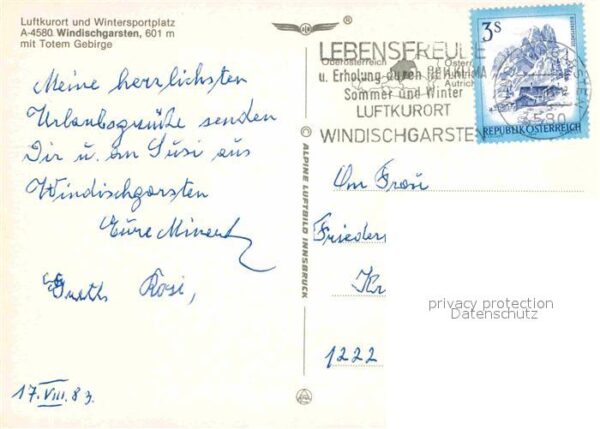 Luftkurort und Wintersportplatz
A-4580 Windischgarsten, 601 m
mit Totem Gebirge
Meine herzlichsten
Urlaubsgrüße senden
Dir u. an Susi aus
Windischgarsten
Eure
Rosi,
17.VIII.83.
ALPINE LUFTBILD INNSBRUCK
®
LEBENSFREUDE
Oberösterreich
u. Erholung durch REIZKLIMA
Sommer und Winter
LUFTKURORT
WINDISCHGARSTEN
3S
REPUBLIK ÖSTERREICH
4580
An Frau
Frieder
Kr
1222
privacy protection
Datenschutz